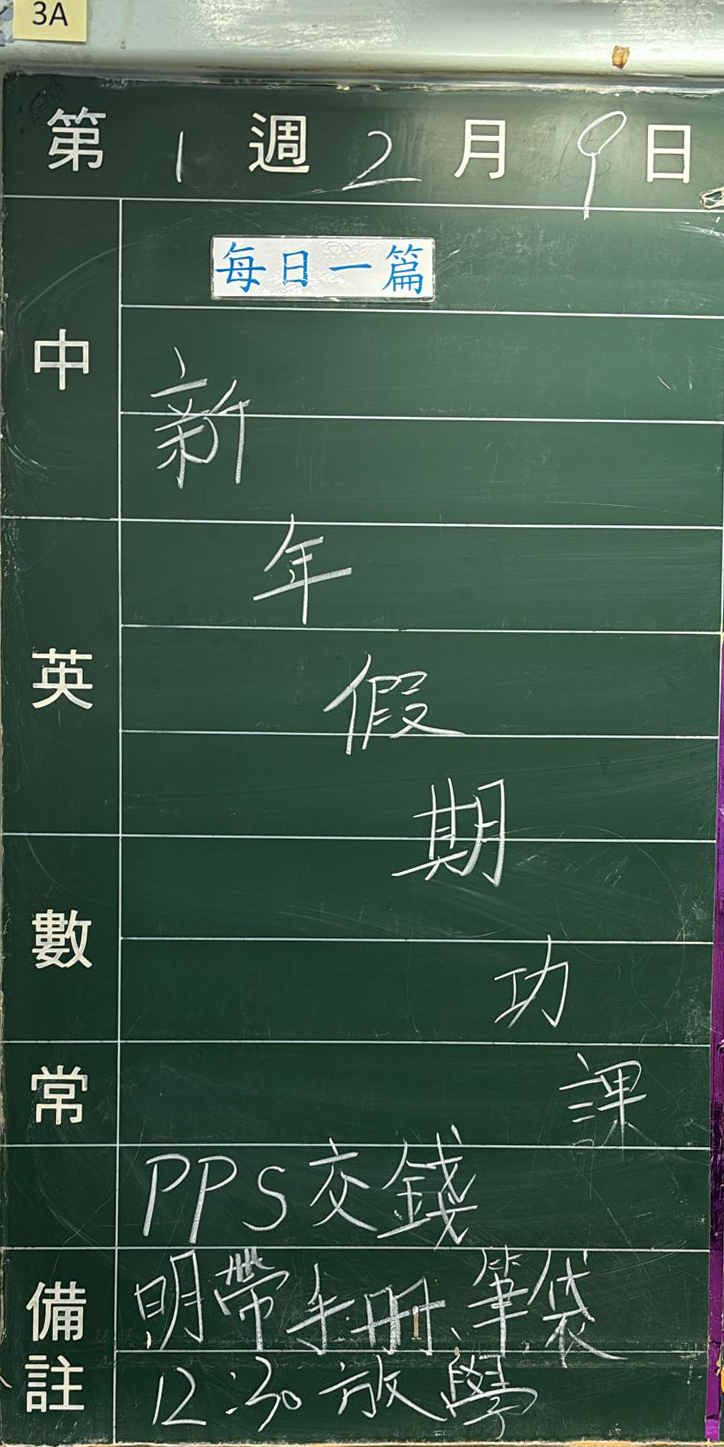 3A
第1週2月9日
中
每日一篇
新
年
英
假
期
數
功
常
課
PPS交錢
備註
明帶手冊、筆袋
12:30放學